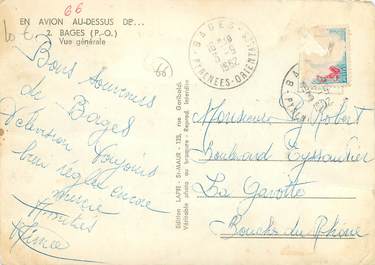 66
EN AVION AU-DESSUS DE...
2. BAGES (P.-O.)
Vue générale
66
Bons Souvenirs
de Bages
Télévision Toujours
bien réglée encore
merci
Amitiés
Edition LAPIE - St-MAUR - 123, rue Garibaldi
Véritable photo au bromure - Reprod. Interdite
BAGES
1962
PYRENEES-ORIENTALES
Monsieur Robert
Boulevard Eyssautier
La Gavotte
Bouches du Rhône